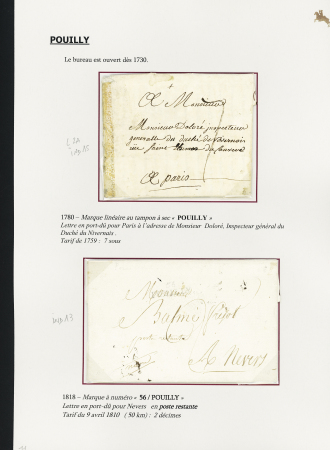 POUILLY
Le bureau est ouvert dès 1730.
A Monsieur
Monsieur Doloré inspecteur
generalle du duché de
rüe Saint Thomas du Louvre
A paris
1780 – Marque linéaire au tampon à sec « POUILLY »
Lettre en port-dû pour Paris à l'adresse de Monsieur Doloré, Inspecteur général du
Duché du Nivernais.
Tarif de 1759 : 7 sous
Monsieur
A Nevers
1818 – Marque à numéro « 56 / POUILLY »
Lettre en port-dû pour Nevers en poste restante
Tarif du 9 avril 1810 ( 50 km) : 2 décimes